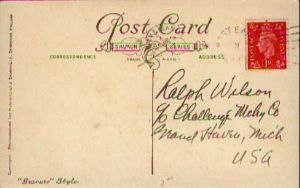 Post Card
SALMON SERIES
TRADE MARK
CORRESPONDENCE
ADDRESS
Ralph Wilson
c/o Challenge Mchy Co
Grand Haven, Mich
USA
"Gravure" Style.